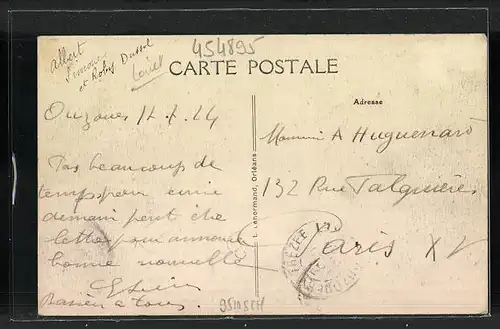 Albert
Simone
et Roby Dussol
Loiret
454895
CARTE POSTALE
Adresse
Ouzouer 12.7.24
Pas beaucoup de
temps pour écrire
demain peut être
lettre pour annoncer
bonne nouvelle
Baisers à tous
E. Lenormand, Orléans
Monsieur A Huguenard
132 Rue Falguière
Paris XV
TREZEE